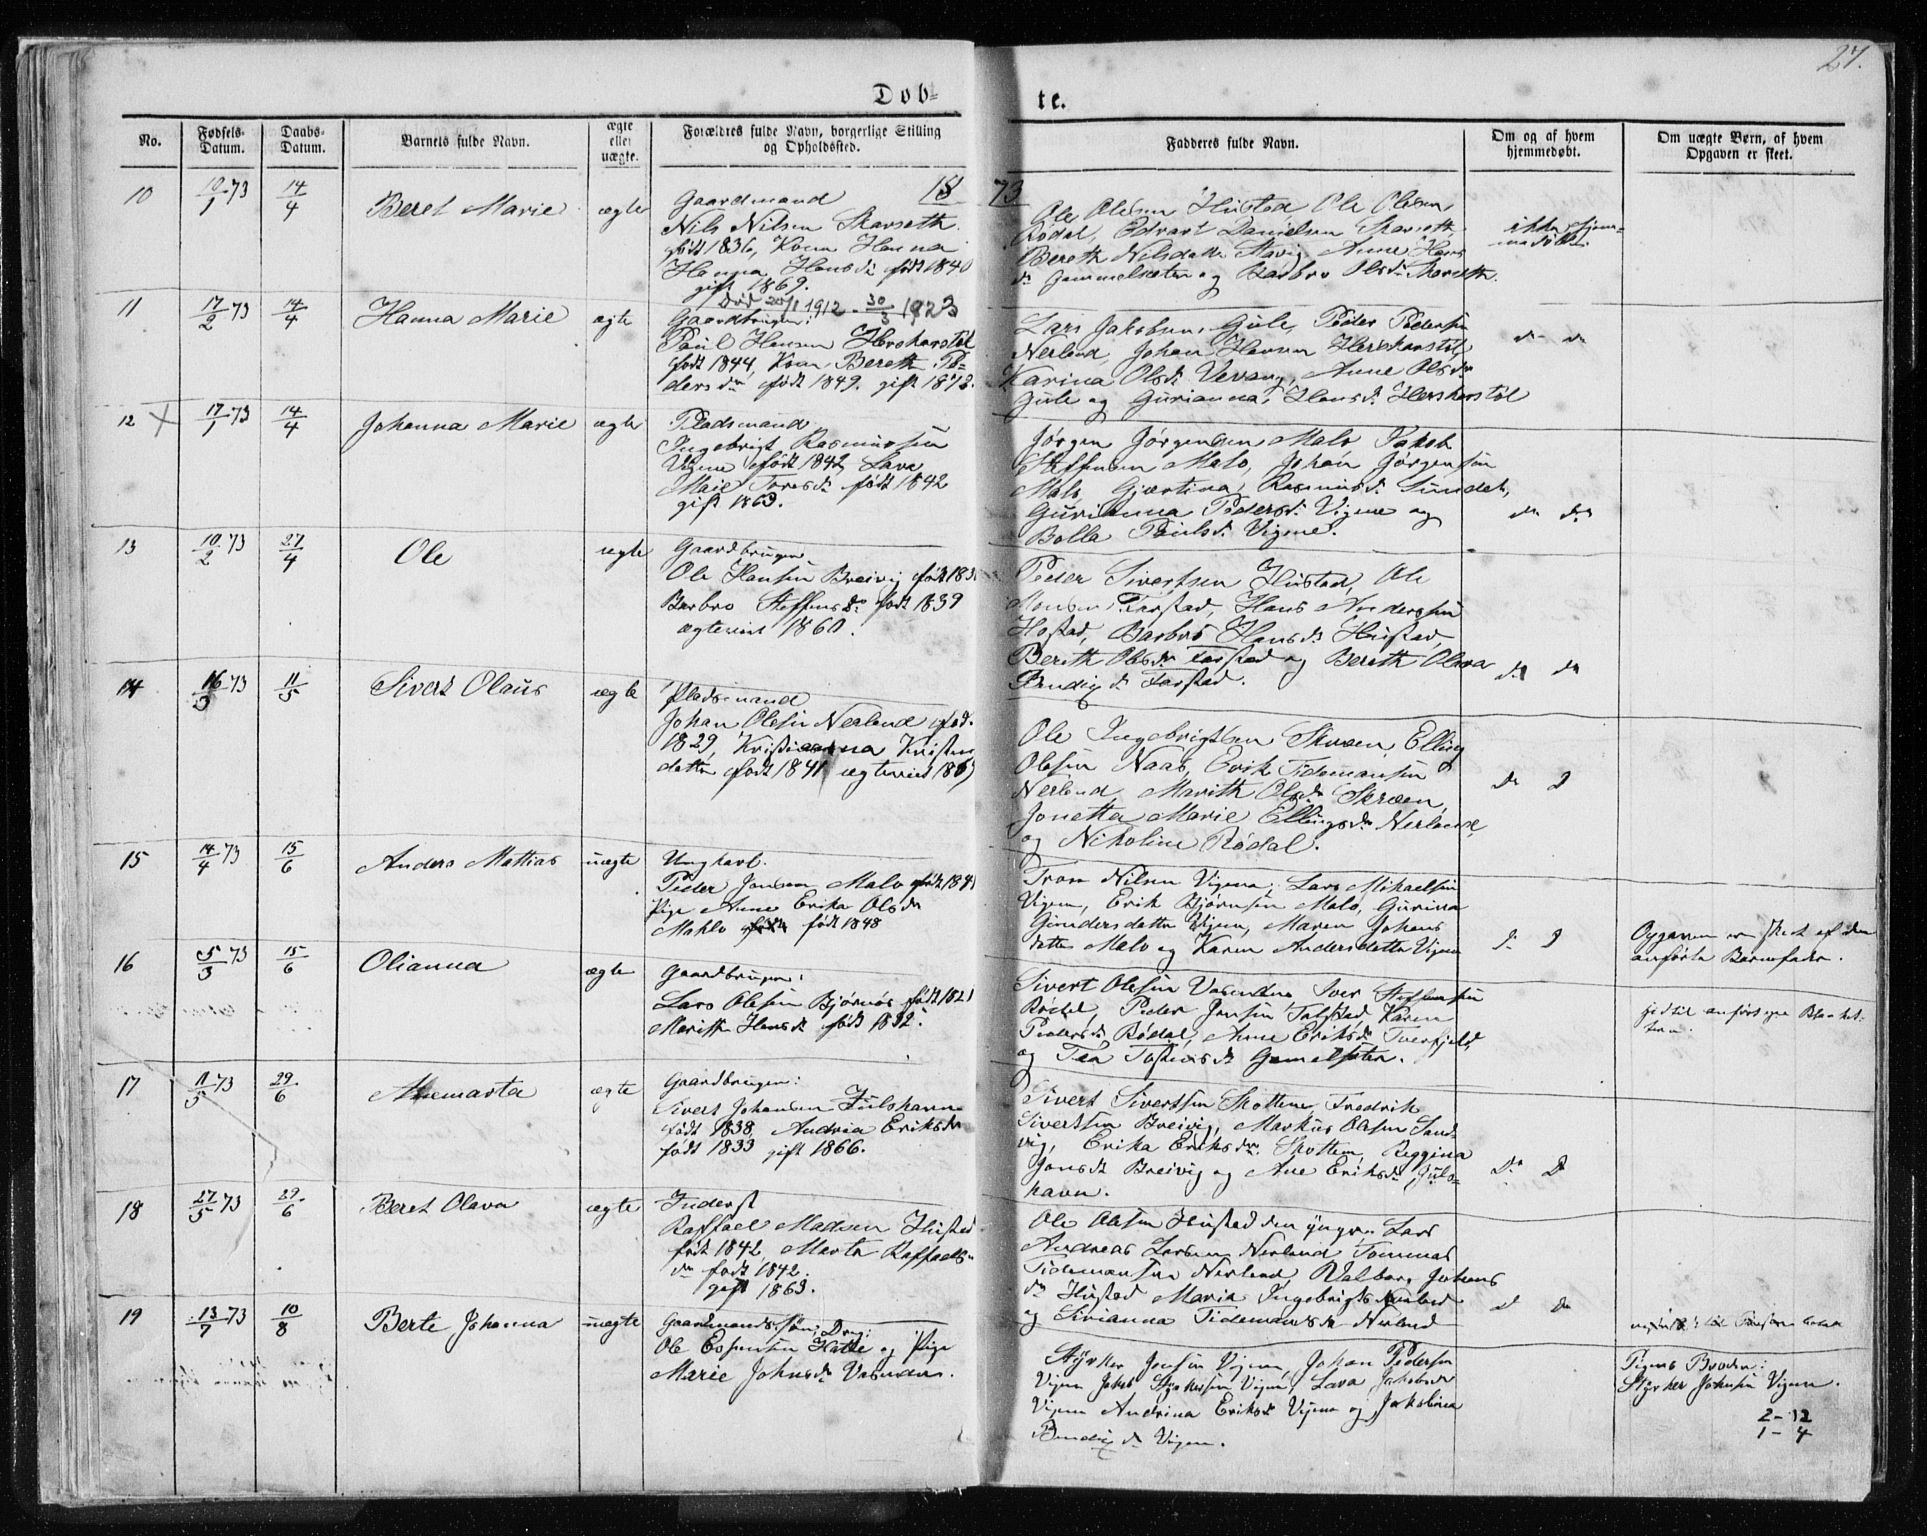 27.
Døb=
te.
No.
Fødsels-
Datum.
Daabs-
Datum.
Barnets fulde Navn.
ægte
eller
uægte.
Forældres fulde Navn, borgerlige Stilling
og Opholdssted.
Fadderes fulde Navn.
Om og af hvem
hjemmedøbt.
Om uægte Børn, af hvem
Opgaven er skeet.
1873
10
10/1 73
14/4
Beret Marie
ægte
Gaardmand
Nils Nilsen Skarseth
født 1836, Kona Hanna
Hanna Hansdr født 1840
gift 1869.
Ole Olsen Hustad, Ole Olsen
Rødal, Edvart Danielsen Skarseth,
Bereth Nilsdatter Stavig, Anne Hans
dr Gammelsæter og Barbro Olsdr Skarseth
ikke hjem-
medøbt.
11
17/2 73
14/4
Hanna Marie
ægte
Død 20/1 1912 - 30/3 1923
Gaardbruger:
Paul Hansen Herskarstøl
født 1844, Kone Bereth Pe-
dersdr født 1849. gift 1872.
Lars Jakobsen Gule, Peder Pedersen
Nerland, Johan Hansen Herskarstøl,
Karina Olsdr Vevang, Anne Olsdr
Gule og Gurianna Hansdr Herskarstøl
do do
12 X
17/1 73
14/4
Johanna Marie
ægte
Pladsmand
Ingebrigt Rasmussen
Vigene født 1842, Lava
Marie Toresdr født 1842
gift 1863.
Jørgen Jørgensen Malo, Jakob
Steffensen Malo, Johan Jørgensen
Malo, Gjertina Rasmusdr Sundet,
Gurianna Pedersdr Vigene og
Bolla Paulsdr Vigene.
do do
13
10/2 73
27/4
Ole
ægte
Gaardbruger
Ole Hansen Breivig født 183
Barbro Steffensdr født 1839
ægteviet 1860.
Peder Sivertsen Hustad, Ole
Monsen Farstad, Hans Anderssen
Hostad, Barbro Hansdr Hustad,
Bereth Olsdr Farstad og Bereth Olava
Bendixdr Farstad.
do do
14
16/3 73
11/5
Sivert Olaus
ægte
Pladsmand
Johan Olesen Nerland født
1829, Kristianna Kristens
datter født 1841, ægteviet 1869
Ole Ingebrigtsen Skræen, Elling
Olesen Naas, Erik Tidemansen
Nerland, Marith Olsdr Skræen,
Jonetta Marie Ellingsdr Nerland
og Nikoline Rødal.
do D
15
14/4 73
15/6
Anders Mattias
uægte
Ungkarl.
Peder Jonsen Malo født 1841
Pige Anne Erika Olsdr
Mahlo født 1848
Tron Nilsen Vigene, Lars Mikaelsen
Vigen, Erik Bjørnsen Malo, Gurina
Gundersdatter Vigen, Maren Johans
datter Malo og Karen Andersdatter Vigen
D D
Opgaven er skeet af den
anførte Barnefader.
16
5/3 73
15/6
Olianna
ægte
Gaardbruger:
Lars Olesen Bjørnøs født 1821
Marith Hansdr født 1832
Sivert Olesen Vasenden Iver Steffensen
Rødal, Peder Jonsen Talstad Karen
Pedersdr Rødal, Anne Eriksdr Tverfjeld,
og Tea Tostensdr Gamelseter.
17
11/5 73
29/6
Annemarta
ægte
Gaardbruger:
Sivert Johansen Julshavn
født 1838, Andrea Eriksdr
født 1833 gift 1866.
Sivert Sivertsen Skottem, Fredrik
Sivertsen Breivig, Markus Olesen Sand-
vig, Erika Eriksdr Skottem, Reggina
Jonsdr Breivig og Ane Eriksdr Juls-
havn.
Do D
18
27/5 73
29/6
Beret Olava
ægte
Inderst
Raffael Madsen Hustad
født 1842, Marta Raffaels-
dr født 1842.
gift 1863.
Ole Olesen Hustad den yngre, Lars
Andreas Larsen Nerland Tommas
Tidemansen Nerland, Valborg Johans
dr Hustad Maria Ingebrigts Nerland
og Sivianna Tidemansdr Nerland
D do
19
13/7 73
10/8
Berte Johanna
uægte
Gaardmands Søn, Drg:
Ole Espensen Hatle og Pige
Marie Johnsdr Vasenden.
Styrker Jonsen Vigen, Johan Pedersen
Vigen Jakob Styrkersen Vigen, Lava Jakobsdr
Vigen Andrina Eriksdr Vigene og Jakobina
Bendixdr Vigen.
Pigens Broder:
Styrker Johnsen Vigen.
2-12
1-4